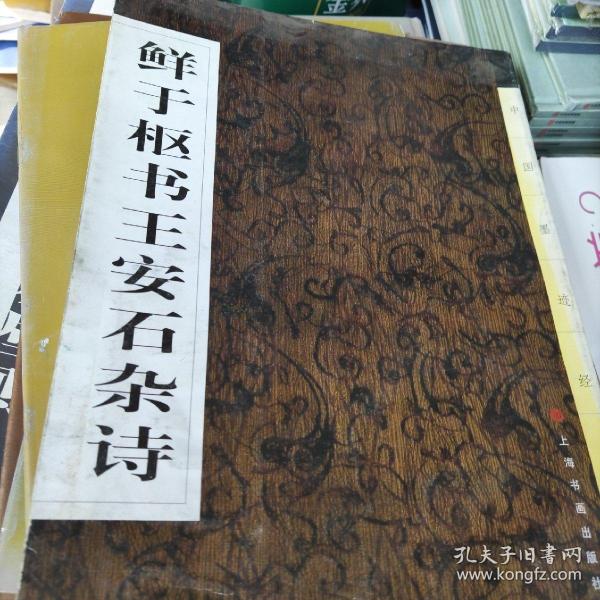 鲜于枢书王安石杂诗
中国墨迹经
上海书画出版社
孔夫子旧书网
www.kongfz.com